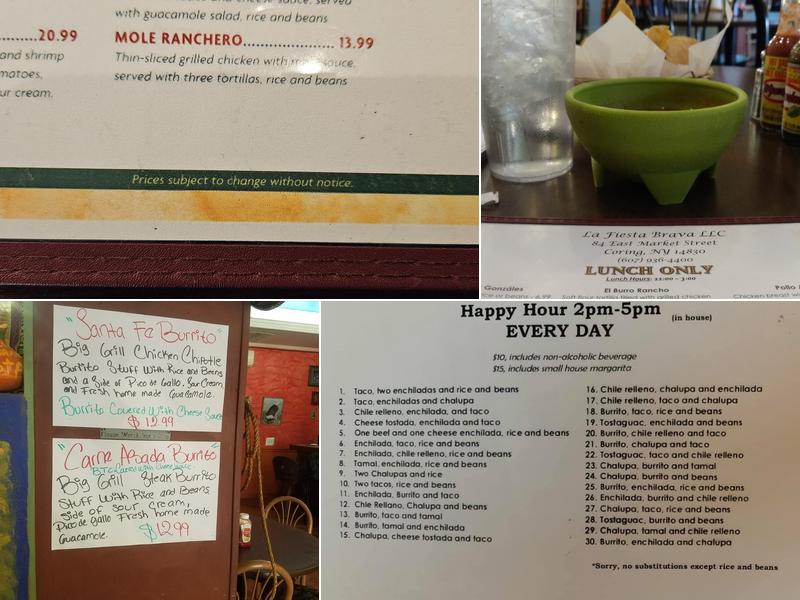 with guacamole salad, rice and beans
20.99
MOLE RANCHERO 13.99
and shrimp
Thin-sliced grilled chicken with mole sauce,
served with three tortillas, rice and beans
matoes,
ur cream.
Prices subject to change without notice.
La Fiesta Brava LLC
84 East Market Street
Coring, NY 14830
(607) 936-4400
LUNCH ONLY
Lunch Hours: 11:00 – 3:00
Gonzáles
El Burro Rancho
Pollo
rice or beans - 6.99
Soft flour tortilla filled with grilled chicken
Chicken breast
"Santa Fe Burrito"
Big Grill Chicken Chipotle
Burrito Stuff With Rice and Beans
and a Side of Pico de Gallo, Sour Cream
and Fresh home made Guacamole.
Burrito Covered With Cheese Sauce
$12.99
"Carne Asada Burrito"
Big Grill Steak Burrito
Stuff With Rice and Beans
Side of Sour Cream,
Pico de Gallo Fresh home made
Guacamole.
$12.99
Happy Hour 2pm-5pm (in house)
EVERY DAY
$10, includes non-alcoholic beverage
$15, includes small house margarita
1. Taco, two enchiladas and rice and beans
2. Taco, enchiladas and chalupa
3. Chile relleno, enchilada, and taco
4. Cheese tostada, enchilada and taco
5. One beef and one cheese enchilada, rice and beans
6. Enchilada, taco, rice and beans
7. Enchilada, chile relleno, rice and beans
8. Tamal, enchilada, rice and beans
9. Two Chalupas and rice
10. Two tacos, rice and beans
11. Enchilada, Burrito and taco
12. Chile Rellano, Chalupa and beans
13. Burrito, taco and tamal
14. Burrito, tamal and enchilada
15. Chalupa, cheese tostada and taco
16. Chile relleno, chalupa and enchilada
17. Chile relleno, taco and chalupa
18. Burrito, taco, rice and beans
19. Tostaguac, enchilada, and beans
20. Burrito, chile relleno and taco
21. Burrito, chalupa and taco
22. Tostaguac, taco and chile relleno
23. Chalupa, burrito and tamal
24. Chalupa, burrito and beans
25. Burrito, enchilada, rice and beans
26. Enchilada, burrito and chile relleno
27. Chalupa, taco, rice and beans
28. Tostaguac, burrito and beans
29. Chalupa, tamal and chile relleno
30. Burrito, enchilada and chalupa
*Sorry, no substitutions except rice and beans